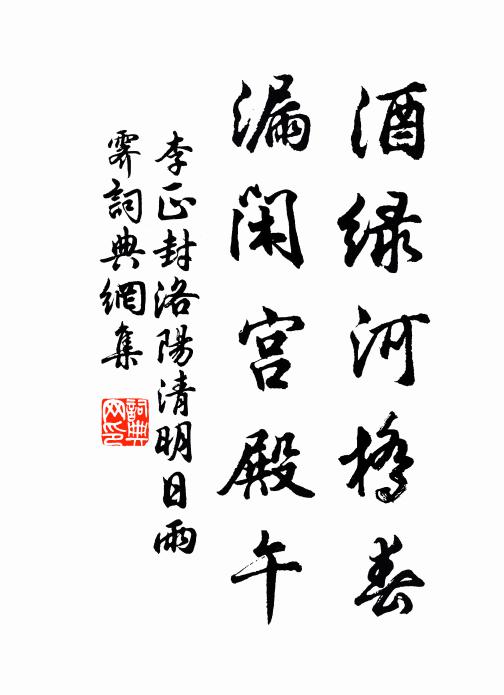 酒绿河橋春
漏闲宫殿午
李正封洛陽清明日雨
霁詞典網集
詞典网印